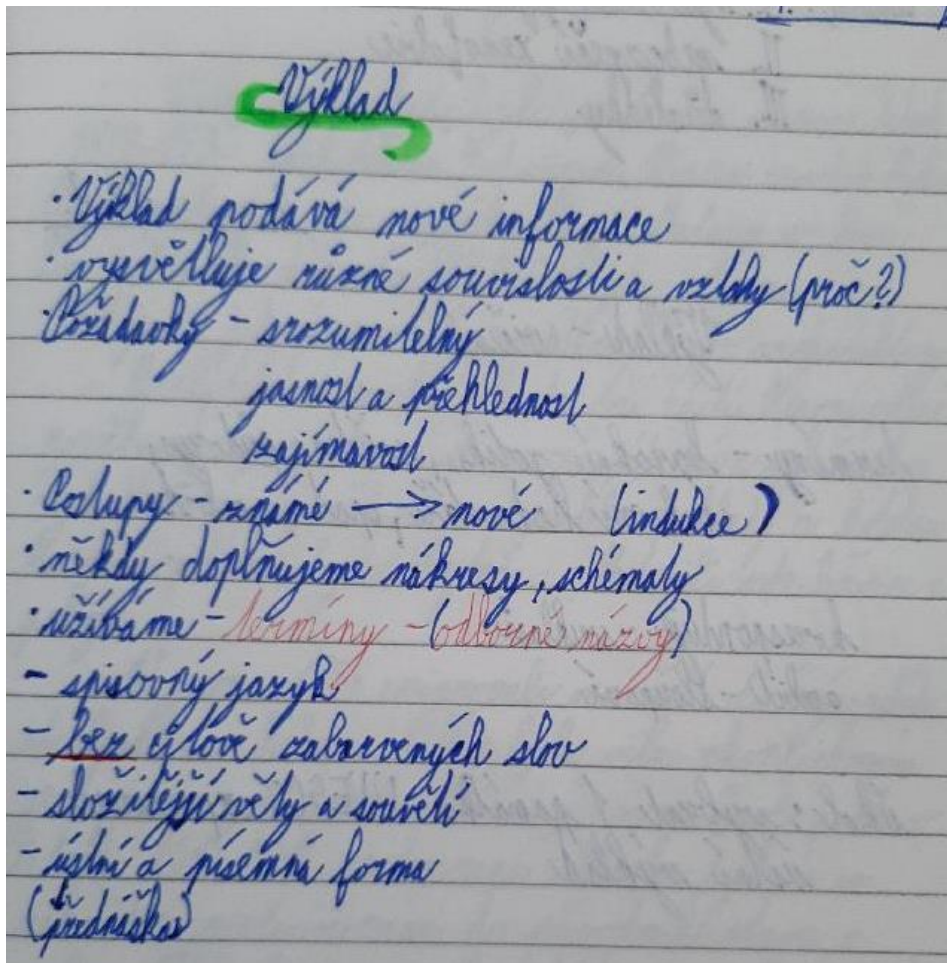 Výklad
· Výklad podává nové informace
· vysvětluje různé souvislosti a vztahy (proč?)
· Požadavky - srozumitelný
jasnost a přehlednost
zajímavost
· Postupy - známé → nové (indukce)
· někdy doplňujeme nákresy, schématy
· užíváme - termíny - (odborné názvy)
- spisovný jazyk
- bez citově zabarvených slov
- složitější věty a souvětí
- ústní a písemná forma
(přednáška)